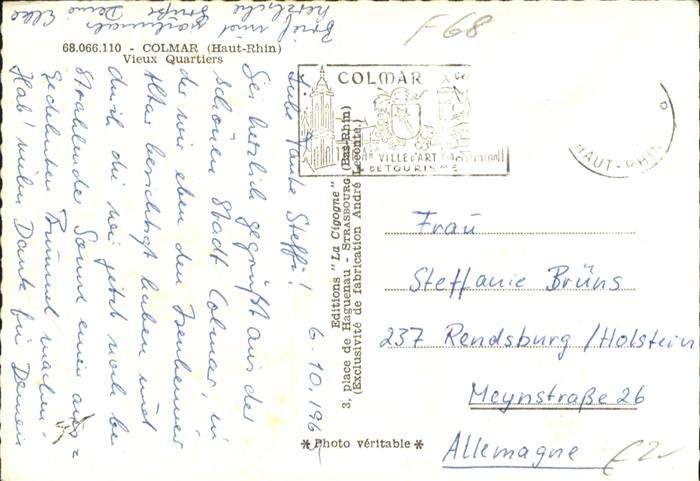 68.066.110 - COLMAR (Haut-Rhin)
Vieux Quartiers
6. 10. 196
Liebe Tante Steffi!
Sei herzlich gegrüßt aus der
schönen Stadt Colmar, in
der wir eben den Isenheimer
Altar besichtigt haben und
durch die wir jetzt noch bei
strahlender Sonne einen aus=
gedehnten Bummel machen.
Hab' vielen Dank für Deinen
Brief und
herzliche Grüße
Deine Elke
Editions "La Cigogne"
3, place de Haguenau - STRASBOURG (Bas-Rhin)
(Exclusivité de fabrication André Leconte.)
*Photo véritable*
F 68
COLMAR
VILLE D'ART
DE TOURISME
HAUT-RHIN
Frau
Steffanie Brüns
237 Rendsburg/Holstein
Meynstraße 26
Allemagne